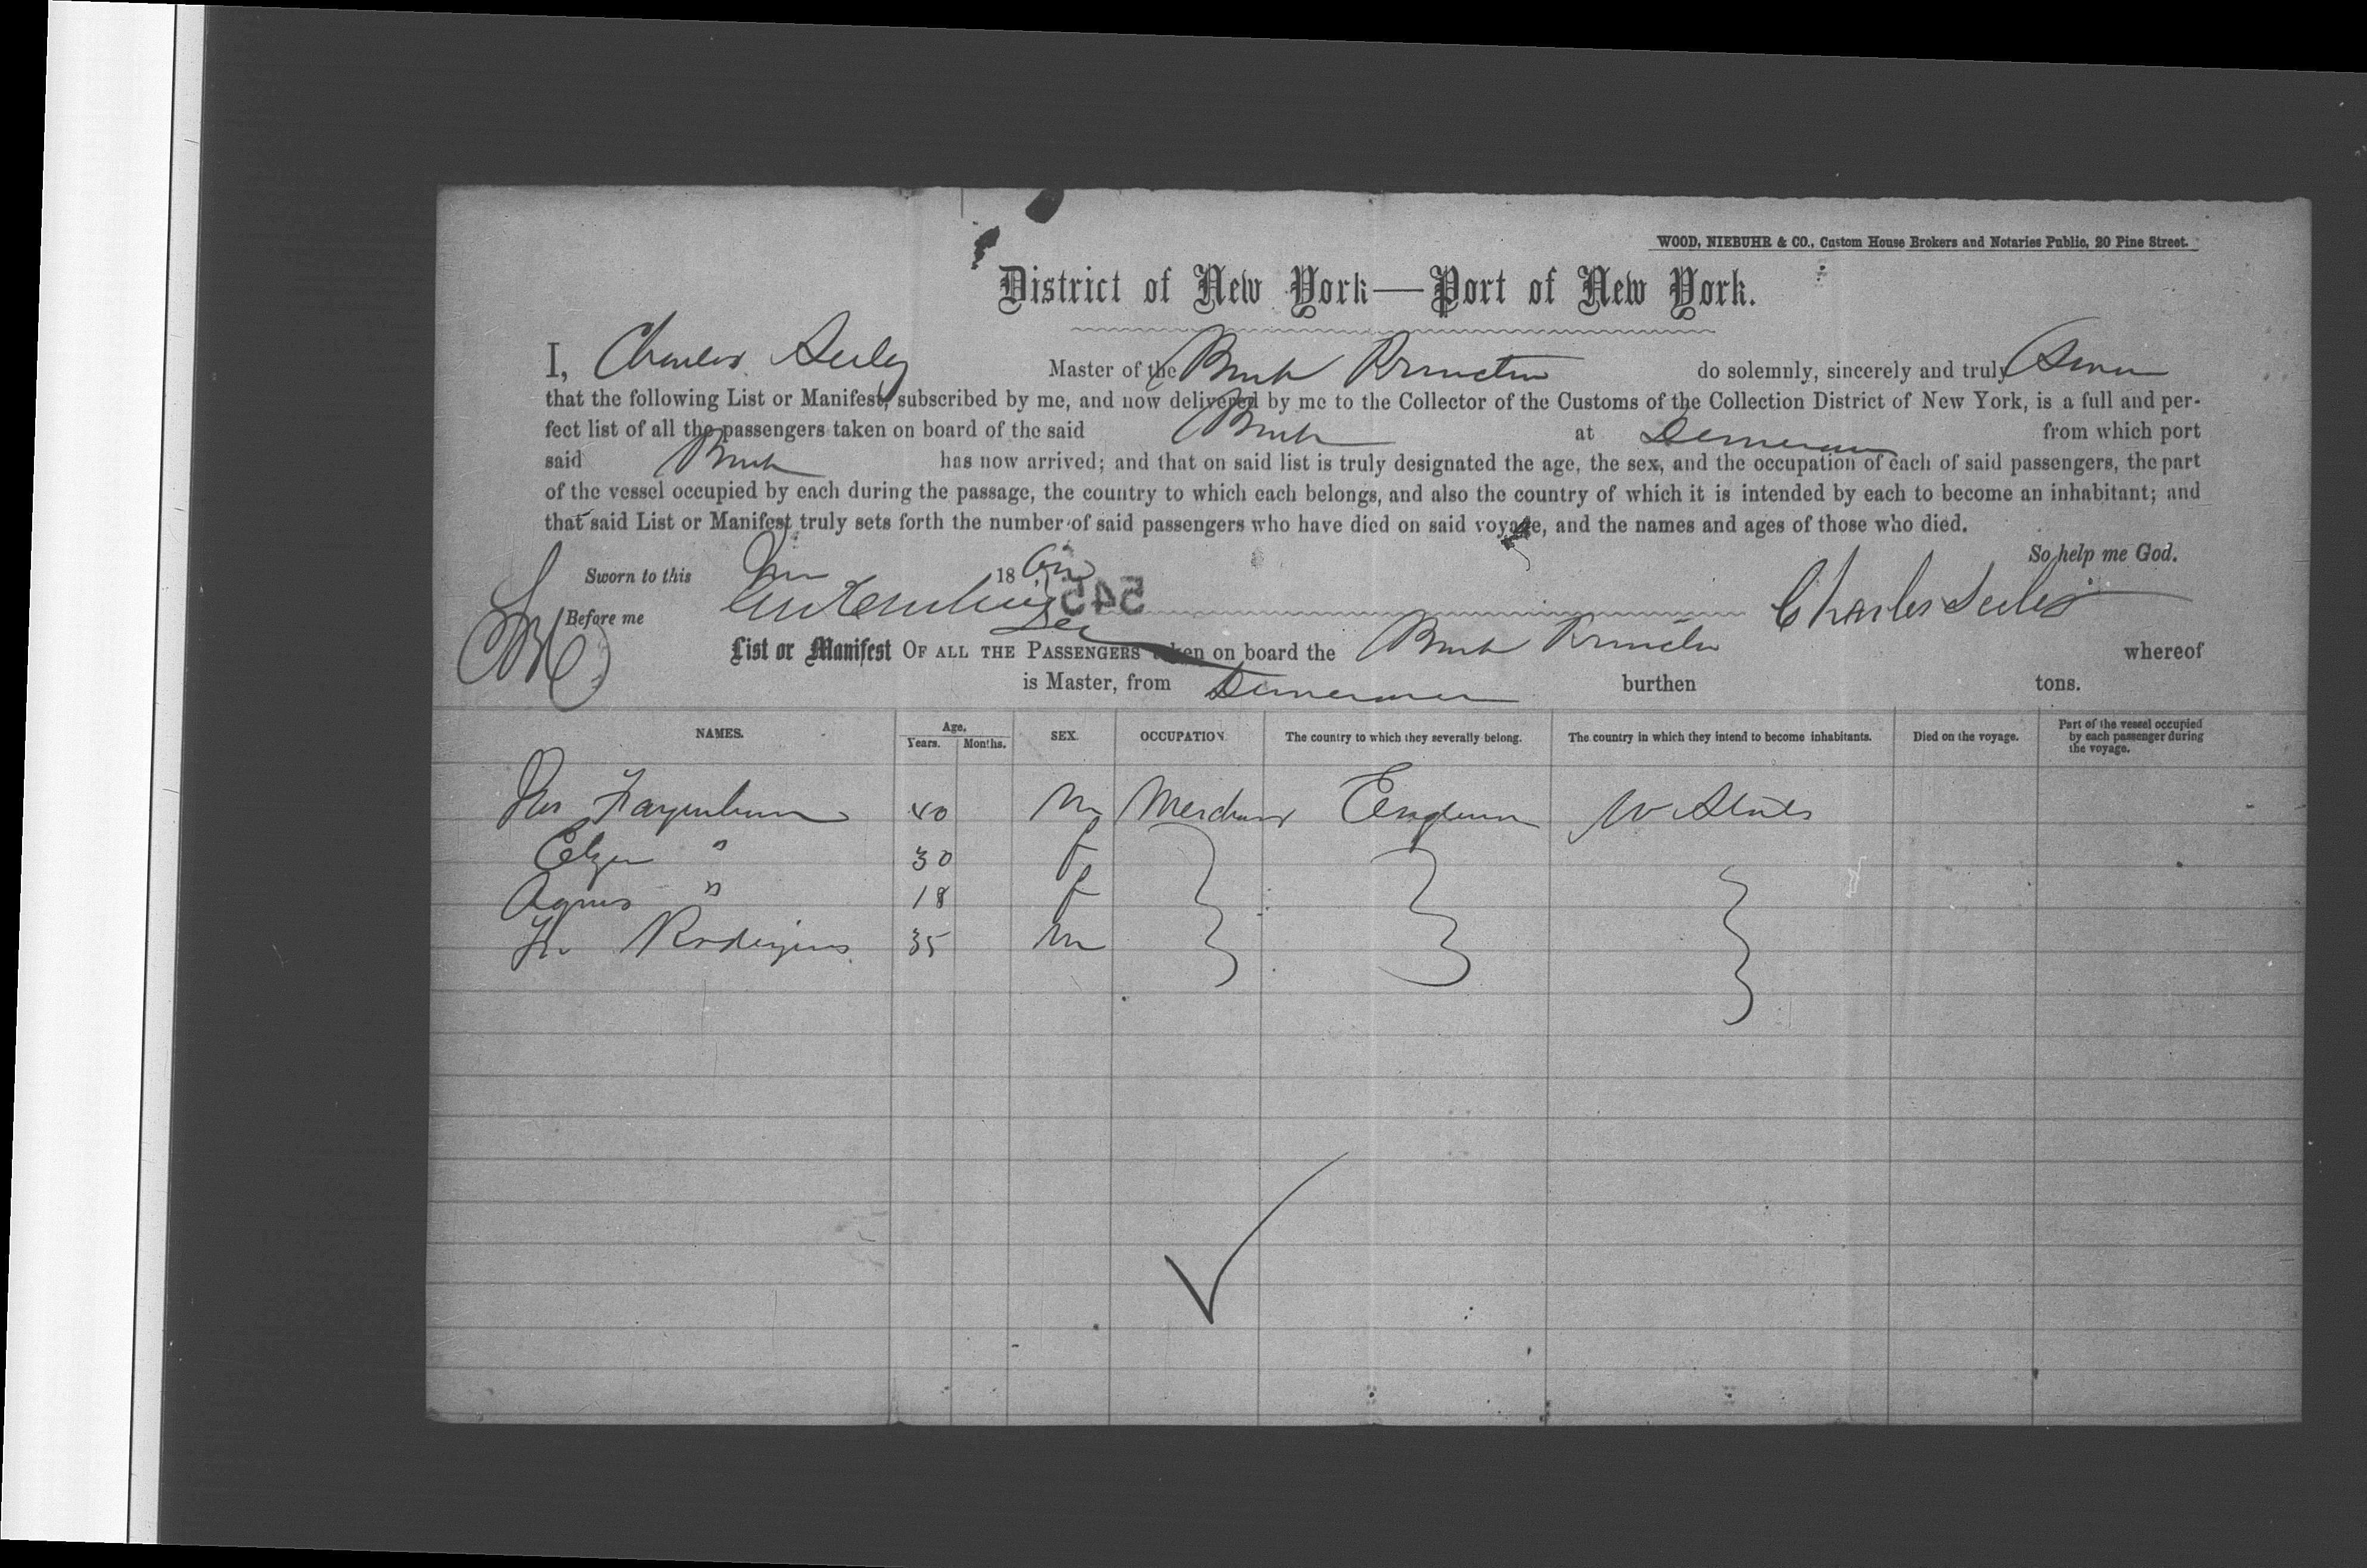 WOOD, NIEBUHR & CO., Custom House Brokers and Notaries Public, 20 Pine Street.
District of New York—Port of New York.
I, Charles Seeley Master of the Bark Princeton do solemnly, sincerely and truly Swear
that the following List or Manifest, subscribed by me, and now delivered by me to the Collector of the Customs of the Collection District of New York, is a full and per-
fect list of all the passengers taken on board of the said Bark at Demerara from which port
said Bark has now arrived; and that on said list is truly designated the age, the sex, and the occupation of each of said passengers, the part
of the vessel occupied by each during the passage, the country to which each belongs, and also the country of which it is intended by each to become an inhabitant; and
that said List or Manifest truly sets forth the number of said passengers who have died on said voyage, and the names and ages of those who died.
So help me God.
Sworn to this 18
Before me 545 Charles Seeley
List or Manifest OF ALL THE PASSENGERS taken on board the Bark Princeton whereof
is Master, from Demerara burthen tons.
NAMES. Age. Years. Months. SEX. OCCUPATION. The country to which they severally belong. The country in which they intend to become inhabitants. Died on the voyage. Part of the vessel occupied by each passenger during the voyage.
40 M Merchant England U States
" 30 F
Agnes " 18 F
35 M